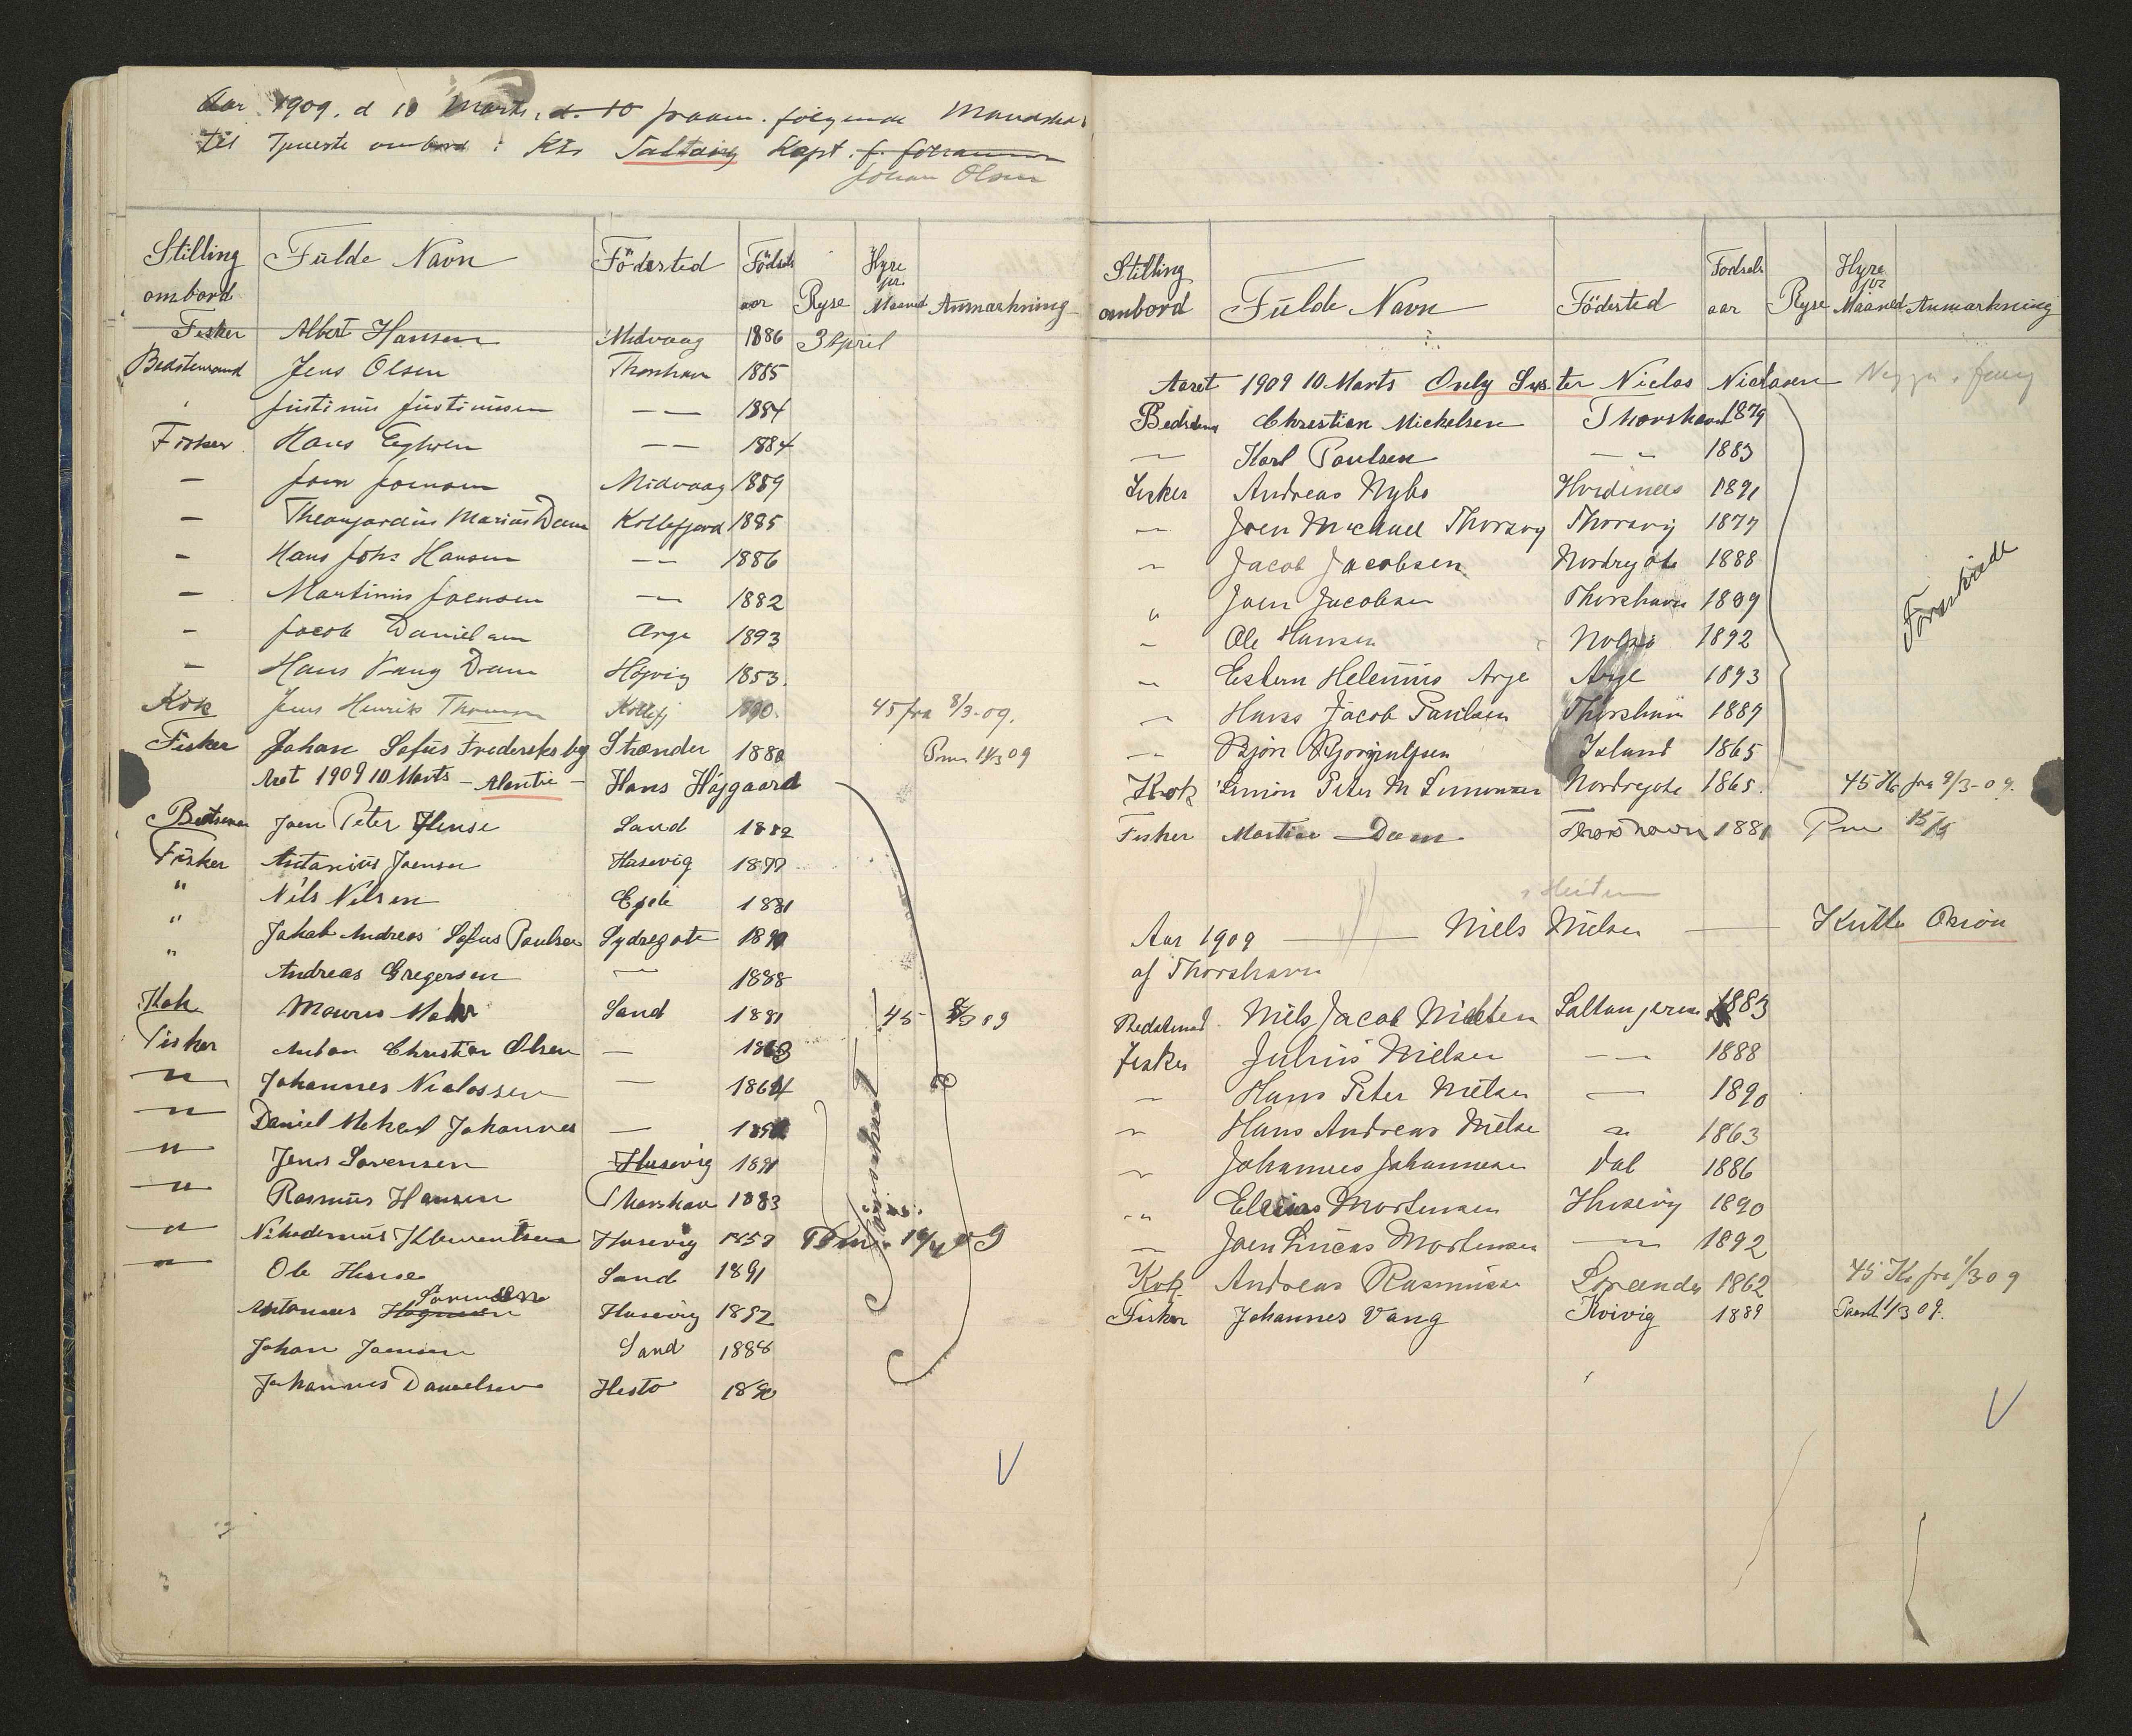 Aar 1909. d 10 Marts. d. 10 følgende Mandskab
til Tjeneste ombord i Kts Saltang Kapt. f. Johannesen
Johan Olsen
Stilling ombord Fulde Navn Födested Födsels aar Ryse Hyre pr. Maaned Anmarkning
Fisker Albert Hansen Midvaag 1886 3 April
Bedstemand Jens Olsen Thorshavn 1885
Justinus Justinussen — — 1884
Fisker Hans — — 1884
— Joen Joensen Midvaag 1889
— Marius Dam Kollefjord 1885
— Hans Johs Hansen — — 1886
— Martinus Joensen — 1882
— Jacob Danielsen Arge 1893
— Hans Vang Dam Höjvig 1853.
Kok Jens Henrik Thomsen Kollefj 1890. 45 fra 8/3-09.
Fisker Johan Sofus Frederiksberg Strænder 1880 Pm 11/3 09
Aret 1909 10 Marts – Atlantic – Hans Højgaard
Bedsteman Joen Peter Hense Sand 1882
Fisker Antonius Joensen Husevig 1877
" Nils Nilsen Ejde 1881
" Jakob Andreas Sofus Poulsen Sydregote 1890
" Andreas Gregersen — 1888
Kok Mouris Mohr Sand 1881 45 – 8/3 09
Fisker Anton Christian Olsen — 1863
" Johannes Niclassen — 1864
" Daniel Mikael Johannes —
" Jens Sørensen Husevig 1891
" Rasmus Hansen Thorshavn 1883
" Nikodemus Klementsen Husevig 1857 19/4 09
" Ole Hense Sand 1891
Antonius Sørensen Husevig 1892
Johan Joensen Sand 1888
Johannes Danielsen Hesto 1890
V
Stilling ombord Fulde Navn Födested Fodsels aar Ryse Hyre pr Maaned Anmarkning
Aaret 1909 10 Marts Only Sister Niclas Niclasen
Bedstem Christian Mickelsen Thorshavn 1879
— Karl Poulsen — — 1883
Fisker Andreas Nybo Hvidenæs 1891
— Joen Michael Thorsvig Thorsvig 1877
— Jacob Jacobsen Nordrgöte 1888
" Joen Jacobsen Thorshavn 1889
— Ole Hansen Nolsø 1892
— Esbern Helenus Arge Arge 1893
— Hans Jacob Paulsen Thorshavn 1887
— Bjön Bjorgnulfsen Island 1865
Forskud
Kok Simon Peter M Simonsen Nordregote 1865. 45 Kr fra 9/3-09.
Fisker Martin Dam Thorshavn 1881 Pm 15/3
Aar 1909 — Niels Nielsen — Kutter Orion
af Thorshavn
Bedstemd Niels Jacob Nielsen Saltangeraa 1883
Fisker Julius Nielsen — — 1888
— Hans Peter Nielsen — 1890
— Hans Andreas Nielse — 1863
— Johannes Johannesen Dal 1886
— Elias Mortensen Husevig 1890
— Joen Lucas Mortensen — 1892
Kok Andreas Rasmusen Strænder 1862 45 Kr fra 1/3 09
Fisker Johannes Vang Kvivig 1889 1/3 09.
V